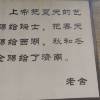 上帝把夏天的艺
赐给瑞士，把春天
赐给西湖，秋和冬
全赐给了济南。
老舍